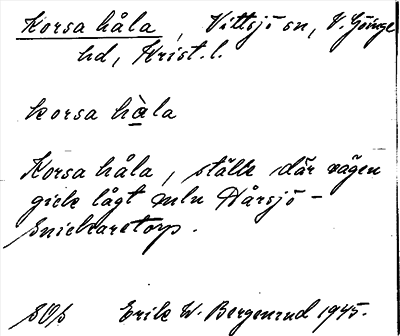 Korsa håla, Vittsjö sn, V. Göinge
hd, Krist. l.
korsa hàla
Korsa håla, ställe där vägen
gick lågt mln Hårsjö -
Snickaretorp.
Erik W. Bergenrud 1945.